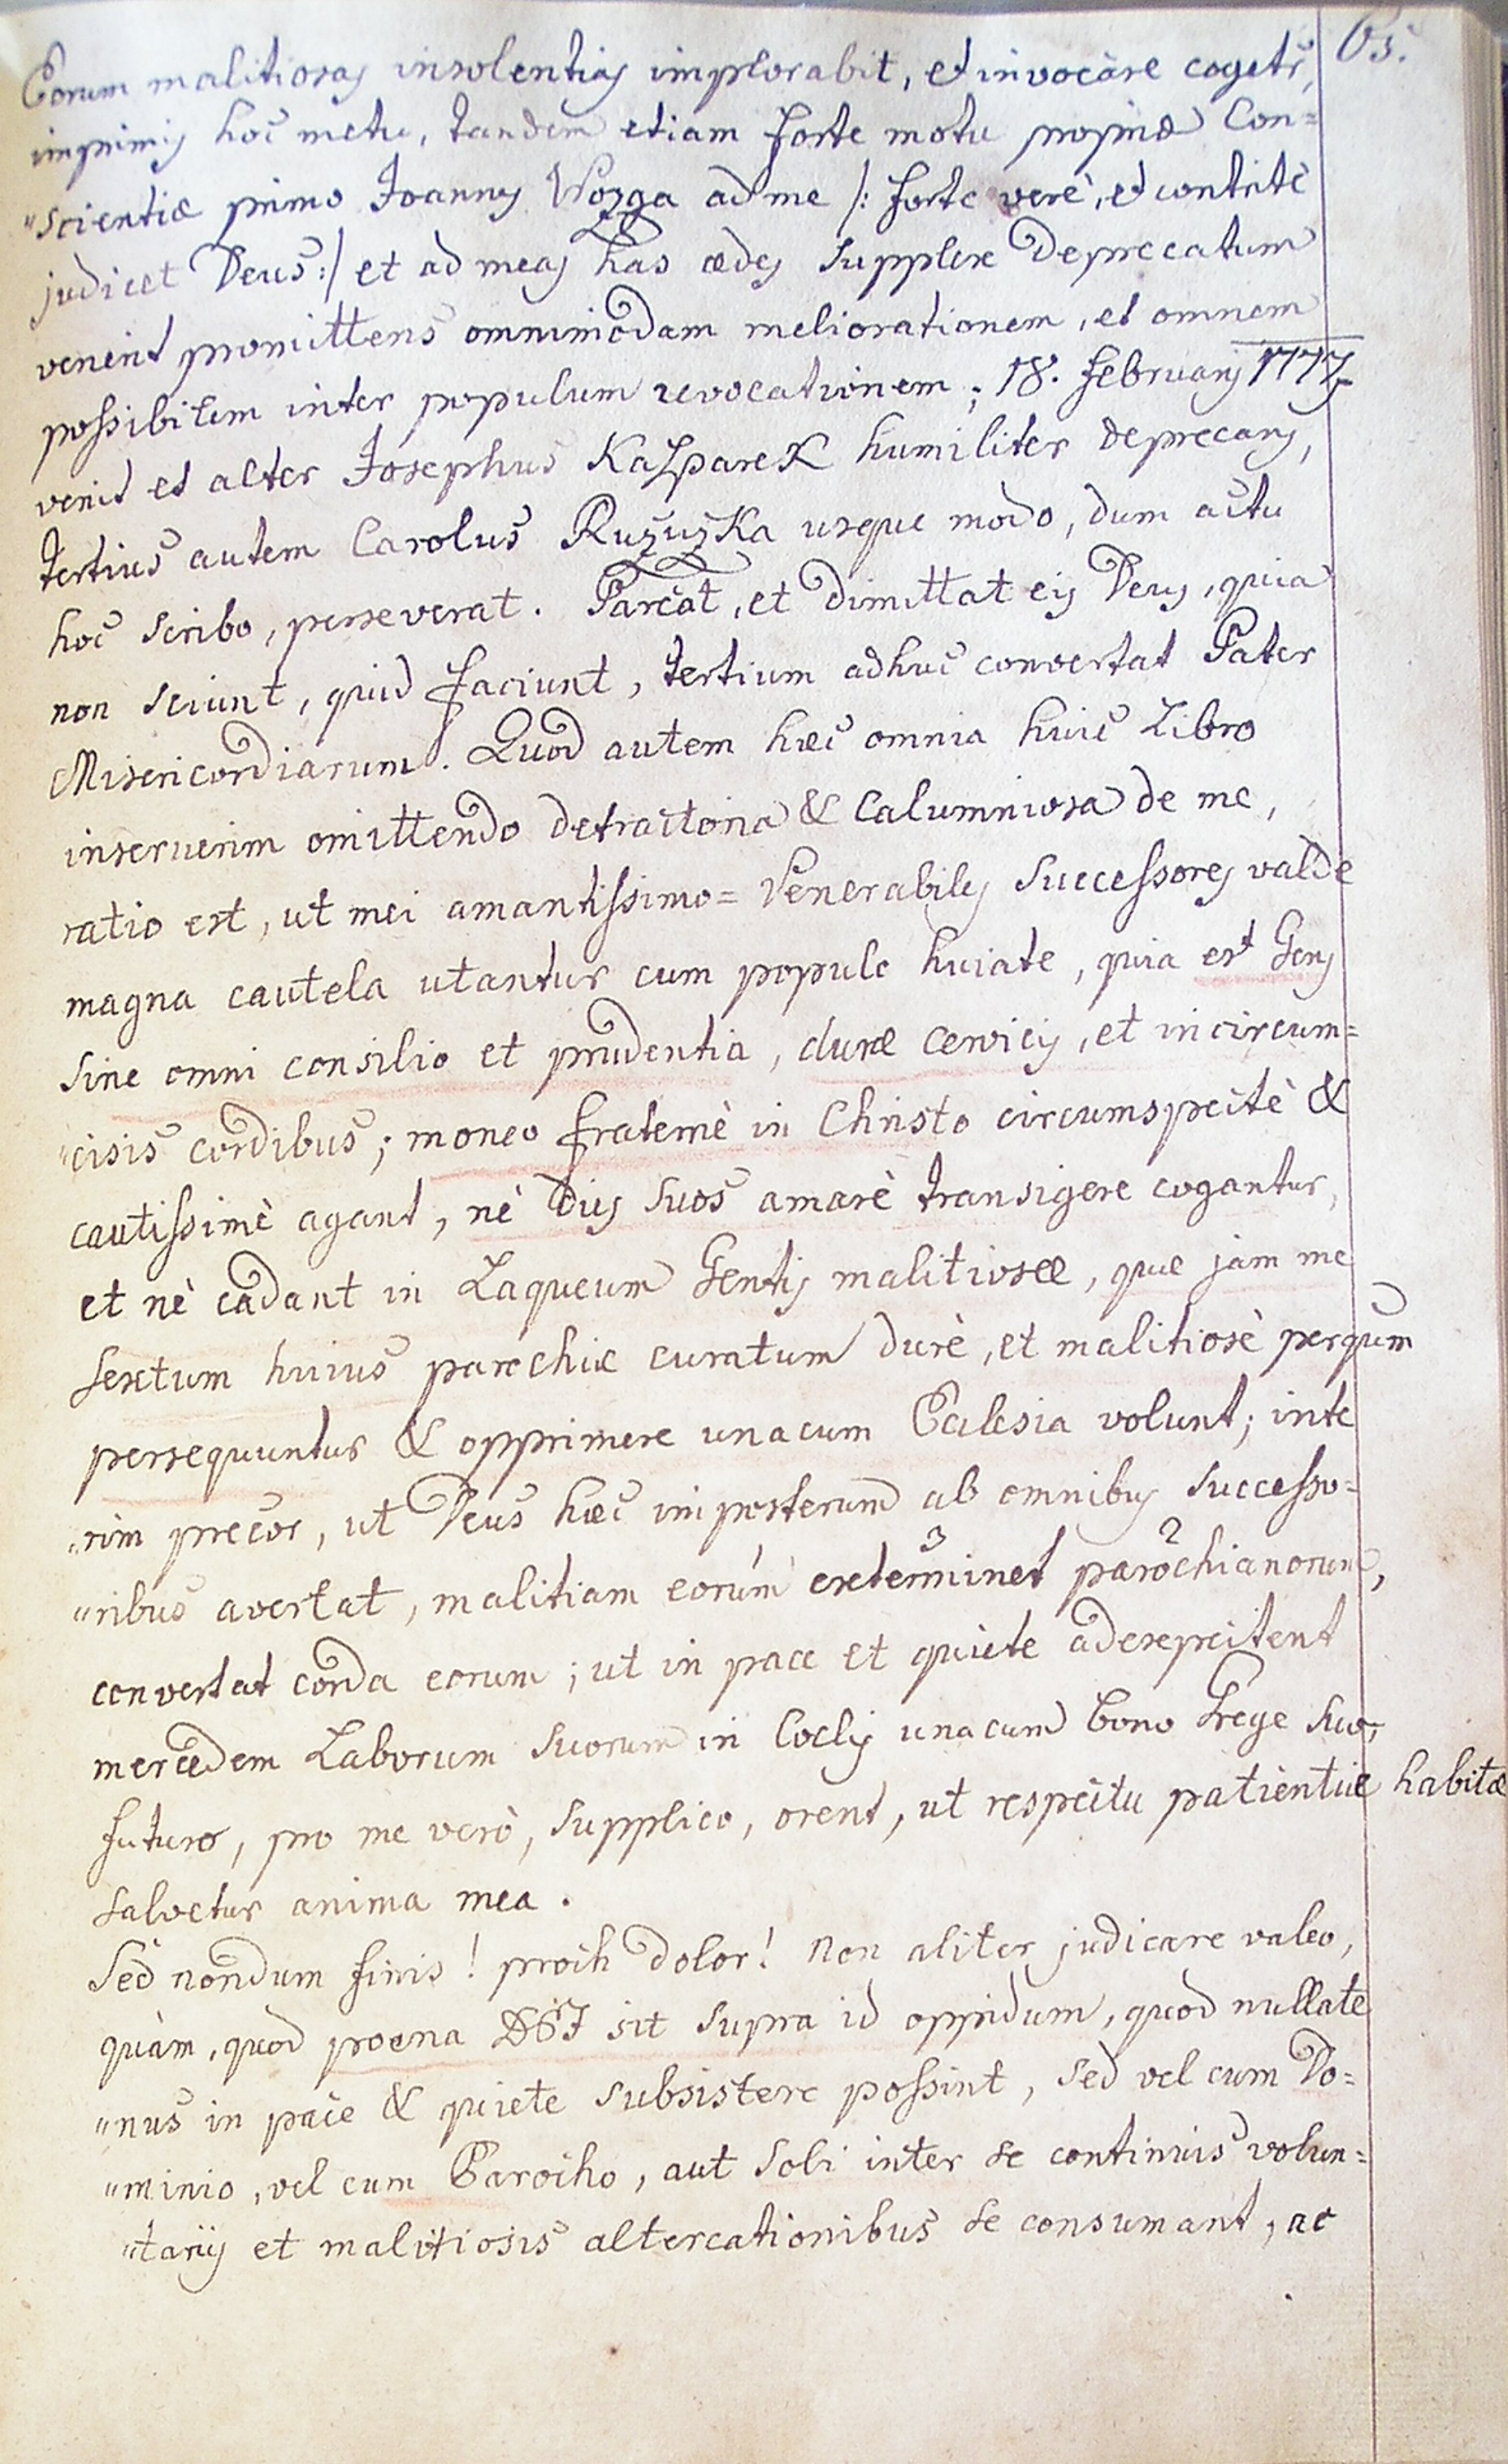 65.
Eorum malitiosas insolentias implorabit, et invocare cogetr,
imprimis hoc metu, tandem etiam forte motu propriæ Con=
"scientiæ primo Joannes Wozga ad me /: forte verè, et contritè
judicet Deus :/ et ad meas has ædes supplex deprecatum
venerit promittens omnimodam meliorationem, et omnem
possibilem inter populum revocationem; 18. February 1777
venit et alter Josephus Kaszparek humiliter deprecans,
tertius autem Carolus Ruzuzka usque modo, dum actu
hoc scribo, perseverat. Parcat, et dimittat eis Deus, quia
non sciunt, quid faciunt, tertium adhuc convertat Pater
Misericordiarum. Quod autem hæc omnia huic Libro
inseruerim omittendo detractoria & Calumniosa de me,
ratio est, ut mei amantissimo= Venerabiles Successores valde
magna cautela utantur cum populo huiate, quia est Gens
sine omni consilio et prudentia, duræ cervicis, et incircum=
"cisis cordibus; moneo fraternè in Christo circumspectè &
cautissimè agant, nè Dies suos amarè transigere cogantur,
et nè cadant in Laqueum Gentis malitiosæ, quæ jam me
sextum huius parochiæ curatum durè, et malitiosè perquàm
persequuntur & opprimere unacum Eclesia volunt; inte
"rim precor, ut Deus hæc imposterum ab omnibus successo=
"ribus avertat, malitiam eorum 3 exterminet 2 parochianorum,
convertat corda eorum; ut in pace et quiete adexspectent
mercedem Laborum suorum in Coelis unacum bono Grege suo,
futuro, pro me verò, supplico, orent, ut respectu patientiæ habitæ
salvetur anima mea.
Sed nondum finis! proch dolor! non aliter judicare valeo,
quàm, quod poena DEI sit supra id oppidum, quod nullate
"nus in pace & quiete subsistere possint, sed vel cum Do=
"minio, vel cum Parocho, aut soli inter se continuis volun=
"tariis et malitiosis altercationibus se consumant, ac